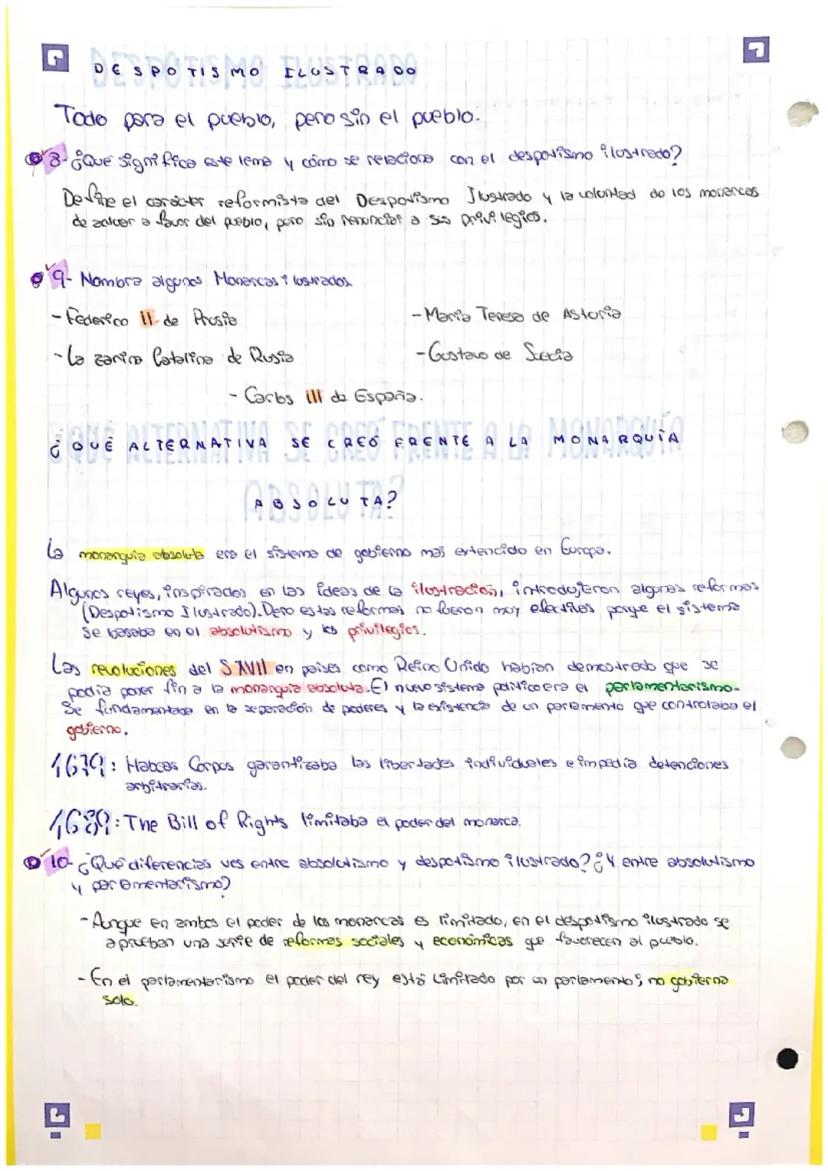 DESPOTISMO ILUSTRADO
Todo para el pueblo, pero sin el pueblo.
8- ¿Qué significa este lema y cómo se relaciona con el despotismo ilustrado?
Define el carácter reformista del Despotismo Ilustrado y la voluntad de los monarcas
de actuar a favor del pueblo, pero sin renunciar a sus privilegios.
9- Nombra algunos Monarcas ilustrados.
- Federico II de Prusia
- Maria Teresa de Asturia
- La zarina Catalina de Rusia
- Gustavo de Suecia
- Carlos III de España.
¿QUÉ ALTERNATIVA SE CREÓ FRENTE A LA MONARQUÍA
ABSOLUTA?
La monarquía absoluta era el sistema de gobierno más extencido en Europa.
Algunos reyes, inspirados en las ideas de la ilustración, introdujeron algunas reformas
(Despotismo Ilustrado). Pero estas reformas no fueron muy efectivas porque el sistema
se basaba en el absolutismo y los privilegios.
Las revoluciones del S.XVII en países como Reino Unido habían demostrado que se
podía poner fin a la monarquía absoluta. El nuevo sistema político era el parlamentarismo.
Se fundamentaba en la separación de poderes y la existencia de un parlamento que controlaba el
gobierno.
1679: Habeas Corpus garantizaba las libertades individuales e impedía detenciones
arbitrarias.
1689: The Bill of Rights limitaba el poder del monarca.
10- ¿Qué diferencias ves entre absolutismo y despotismo ilustrado? ¿Y entre absolutismo
y parlamentarismo?
- Aunque en ambos el poder de los monarcas es limitado, en el despotismo ilustrado se
aprueban una serie de reformas sociales y económicas que favorecen al pueblo.
- En el parlamentarismo el poder del rey está limitado por un parlamento; no gobierna
solo.